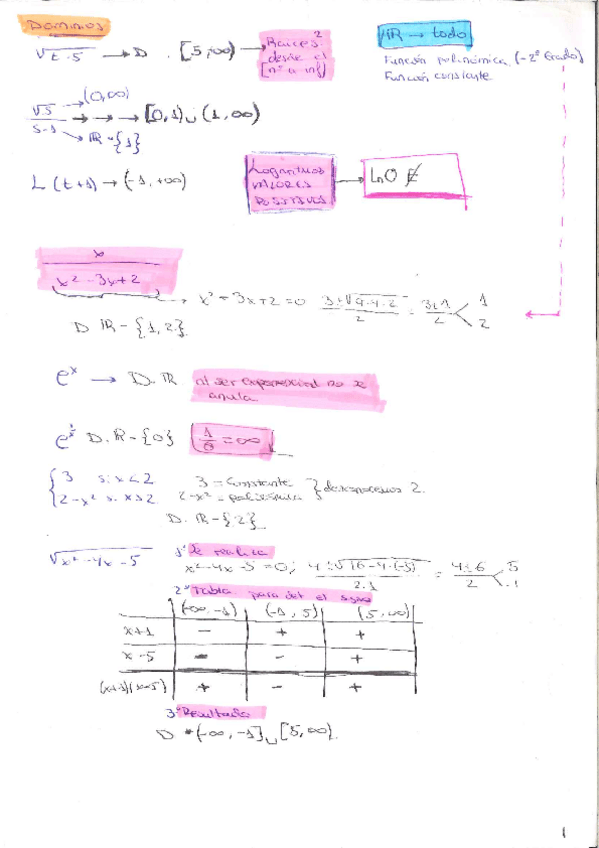 Dominios
√t-5 → D . [5,∞) → Raíces: 2
desde el
[nº a inf)
ℝ → todo
Función polinómica (-2º Grado)
Función constante
√5 → [0,∞)
s-1 → → → [0,1)∪(1,∞)
→ ℝ-{1}
L (t+1) → (-1,+∞)
Logaritmos
MAYORES
POSITIVOS
→ Ln0 ∄
x
x²-3x+2
→ x²-3x+2=0 3±√9-4·2 / 2 = 3±1 / 2 < 1
2
D ℝ-{1,2}
eˣ → D. ℝ al ser exponencial no se
anula
e^(1/x) D. ℝ-{0} 1/0 = ∞
{ 3 si x<2 3 = constante
2-x² si x>2 2-x² = polinómica } desconocemos 2.
D. ℝ-{2}
√x²-4x-5 1º Se realiza
x²-4x-5=0; 4±√16-4·(-5) / 2·1 = 4±6 / 2 < 5
-1
2º Tabla para det el signo
(-∞,-1) (-1,5) (5,∞)
x+1 - + +
x-5 - - +
(x+1)(x-5) + - +
3º Resultado
D (-∞,-1]∪[5,∞).
1